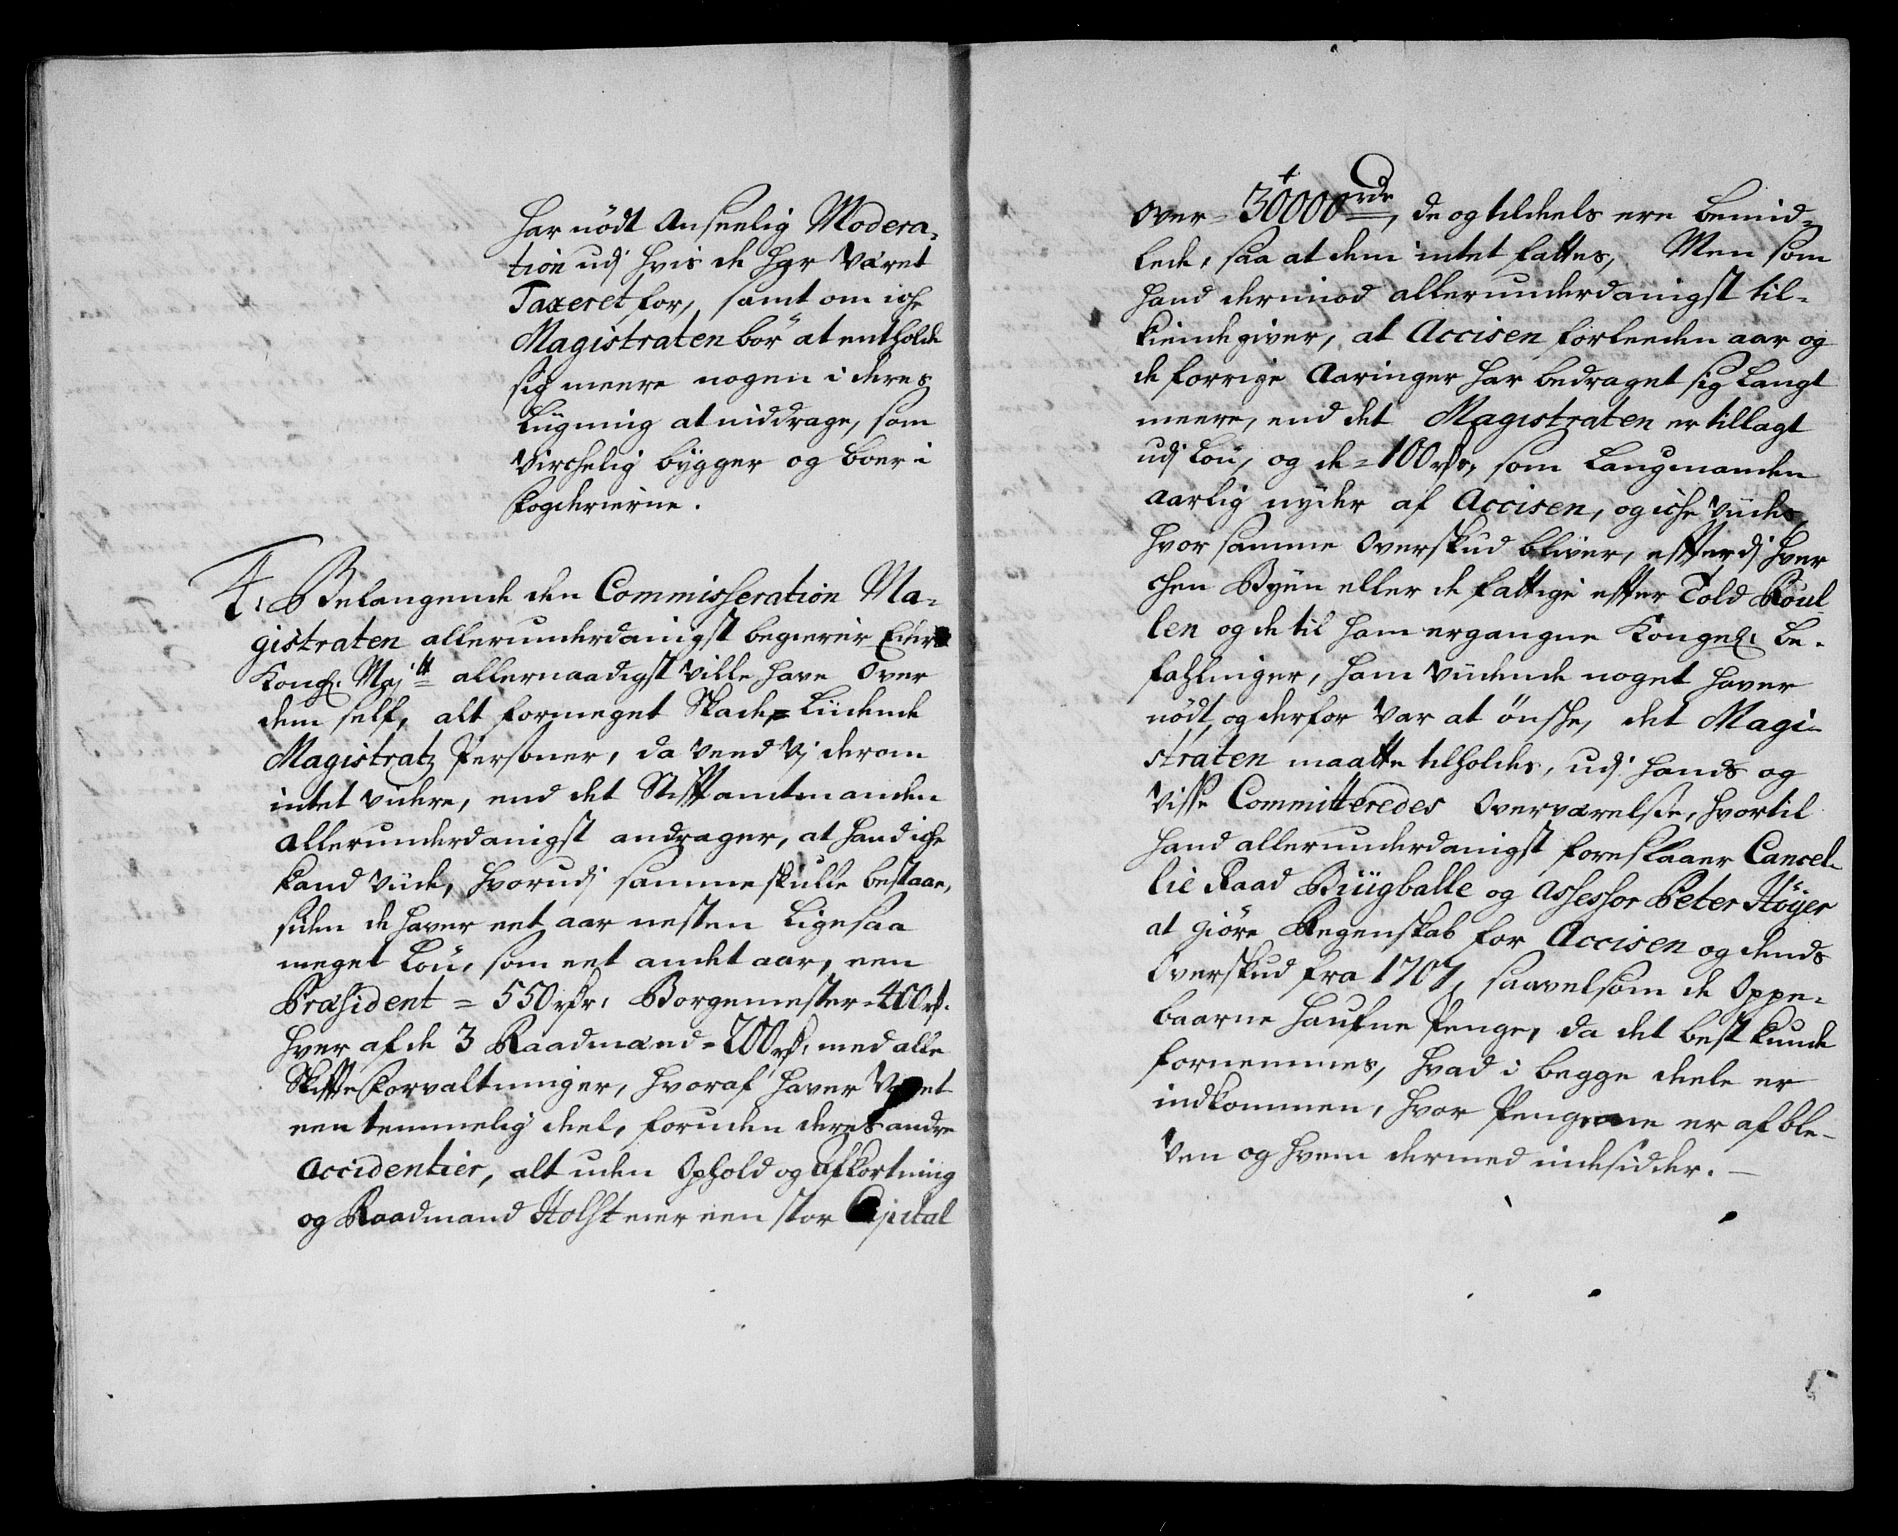 har nödt Anseelig Modera-
tion udj hvis de har Været
Taxeret for, samt om iche
Magistraten bör at entholde
sig meere nogen i deres
Ligning at inddrage, som
Virchelig bÿgger og boer i
Fogderierne.
4. Belangende den Commisseration Ma-
gistraten allerunderdanigst begierer Eders
Kongl. Maj:tt allernaadigst Ville have Over
dem self, alt formeget Skade-Liidende
Magistratz Personer, da Veed Vj derom
intet videre, end det Stifftamtmanden
allerunderdanigst andrager, at hand iche
kand viide, hvorudj samme skulle bestaae,
siden de haver eet aar nesten Ligesaa
meget Lön, som eet andet aar, een
Præsident = 550 rdr, Borgemester - 400 rd.
hver af de 3 Raadmænd - 200 rd, med alle
Skiffte forvaltninger, hvoraf haver Været
een temmelig deel, foruden deres andre
Accidentier, alt uden Ophold og Afkortning
og Raadmand Holst eier een stor Capital
over - 30000 rdr, de og tildeels ere bemid-
lede, saa at dem intet fattes, Men som
hand dermod allerunderdanigst til-
kiende giver, at Accisen forleeden aar og
de forrige Aaringer har bedraget sig Langt
meere, end det Magistraten er tillagt
udj Lön, og de = 100 rdr, som Laugmanden
aarlig nÿder af Accisen, og iche viides,
hvor samme Overskud bliver, efftterdj hver
chen Bÿen eller de fattige effter Told Roul-
len og de til ham ergangne Kongel. be-
fahlinger, ham viidende noget haver
nödt, og derfor Var at önske, det Magi-
straten maatte tilholdes, udj hands og
Visse Committeredes Overværelse, hvortil
hand allerunderdanigst foreslaaer Cancel-
lie Raad Bÿgballe og Assessor Peter Höÿer
at giöre Regenskab for Accisen og dends
Overskud fra 1707, saavelsom de Oppe-
baarne haufne Penge, da det best kunde
fornemmes, hvad i begge deele er
indkommen, hvor Pengene er afble-
Ven og hvem dermed indesidder. -